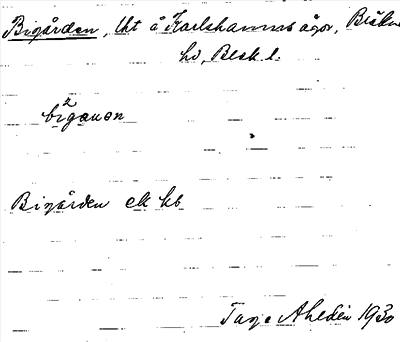 Bigården, lht å Karlshamns ägor, Bräkne
hd, Blek. l.
bi²gauɐn
Bigården ek kb
Tage Ahldén 1930